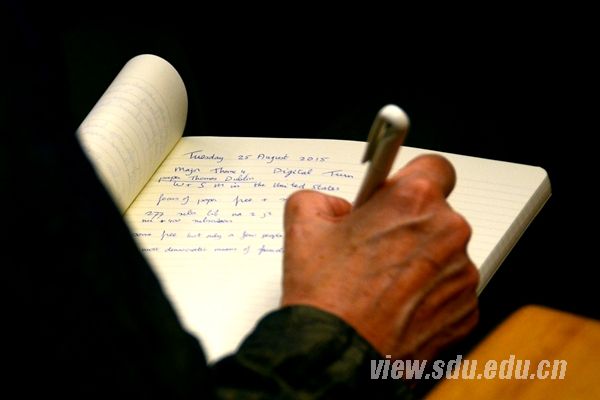 Tuesday 25 August 2015
Major Theme 4 Digital Turn
paper Thomas Dublin
W + S M in the United States
focus of paper free +
277
some free but only a few people
most democratic means of
view.sdu.edu.cn